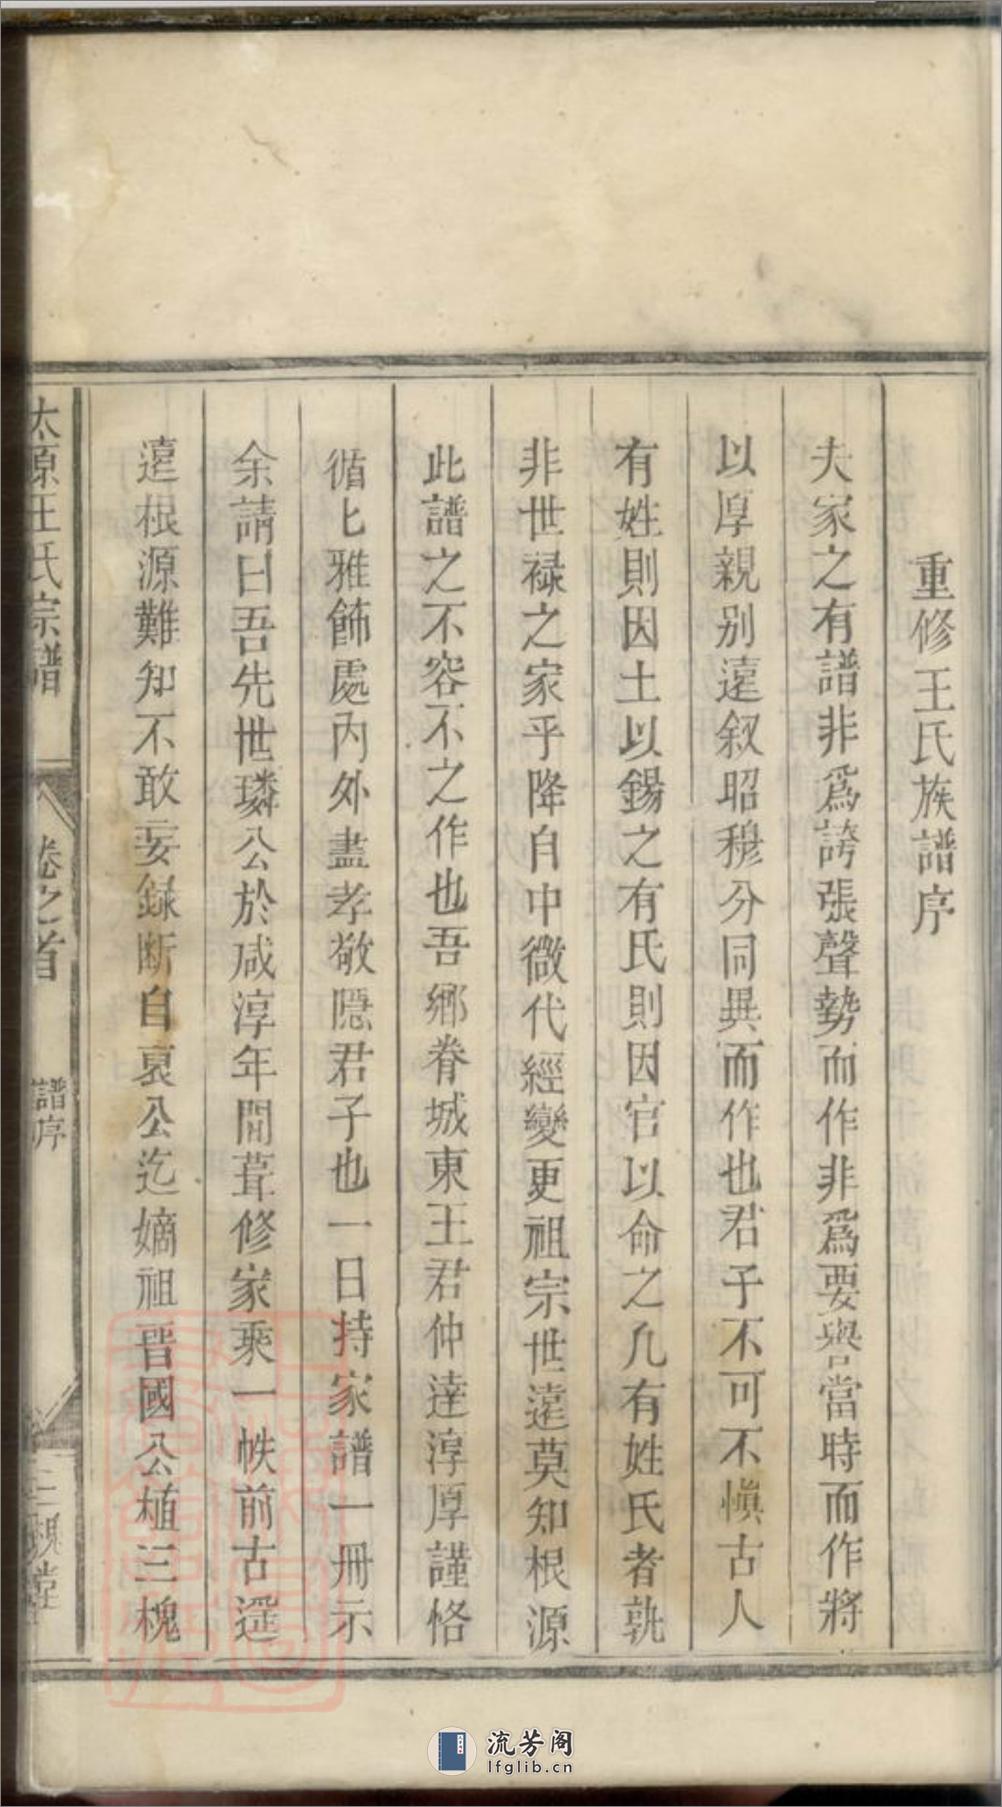 重修王氏族譜序
夫家之有譜非爲誇張聲勢而作非爲要譽當時而作將
以厚親别遠叙昭穆分同異而作也君子不可不慎古人
有姓則因土以錫之有氏則因官以命之凡有姓氏者孰
非世禄之家乎降自中微代經變更祖宗世遠莫知根源
此譜之不容不之作也吾鄉眷城東王君仲達淳厚謹恪
循匕雅飾處内外盡孝敬隠君子也一日持家譜一冊示
余請曰吾先世璘公於咸淳年間葺修家乘一帙前古遥
遠根源難知不敢妄録断自裒公迄嫡祖晋國公植三槐
太原王氏宗譜
卷之首
譜序
三槐堂
流芳阁
lfglib.cn